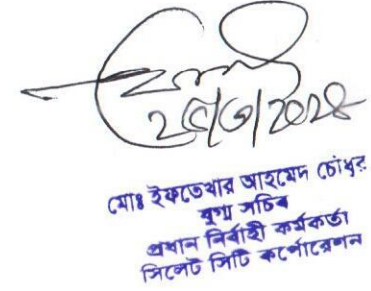 মোঃ ইফতেখার আহমেদ চৌধুরী
যুগ্ম সচিব
প্রধান নির্বাহী কর্মকর্তা
সিলেট সিটি কর্পোরেশন